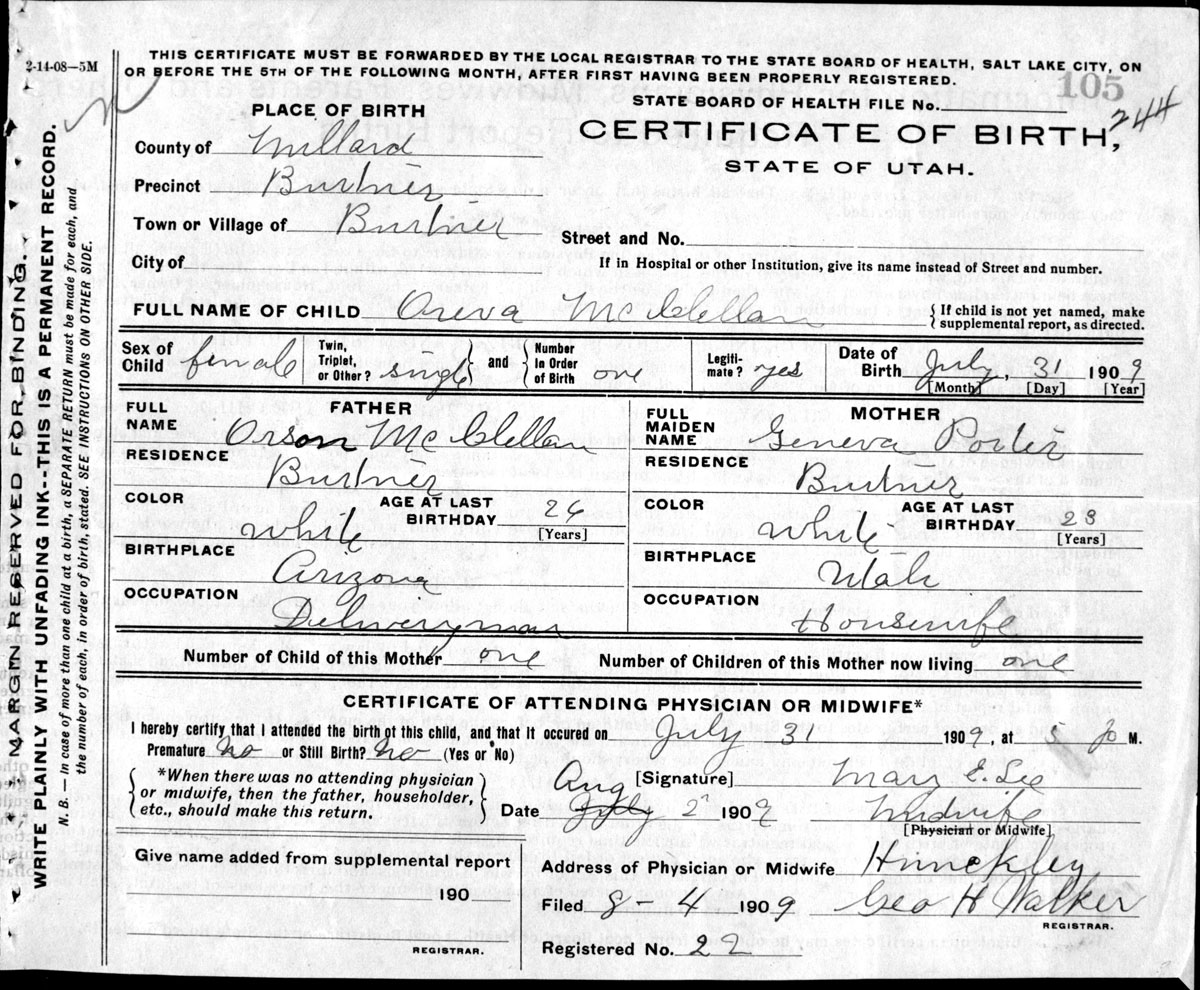 2-14-08—5M
THIS CERTIFICATE MUST BE FORWARDED BY THE LOCAL REGISTRAR TO THE STATE BOARD OF HEALTH, SALT LAKE CITY, ON
OR BEFORE THE 5TH OF THE FOLLOWING MONTH, AFTER FIRST HAVING BEEN PROPERLY REGISTERED.
105
STATE BOARD OF HEALTH FILE No.
244
PLACE OF BIRTH
CERTIFICATE OF BIRTH,
STATE OF UTAH.
County of Millard
Precinct Burtner
Town or Village of Burtner
Street and No.
City of
If in Hospital or other Institution, give its name instead of Street and number.
FULL NAME OF CHILD Oreva McClellan
{ If child is not yet named, make
supplemental report, as directed.
Sex of Child female
Twin, Triplet, or Other? single } and { Number In Order of Birth one
Legiti-mate? yes
Date of Birth July, 31 1909
[Month] [Day] [Year]
FATHER
FULL NAME Orson McClellan
RESIDENCE Burtner
COLOR White
AGE AT LAST BIRTHDAY
[Years]
BIRTHPLACE Arizona
OCCUPATION Deliveryman
MOTHER
FULL MAIDEN NAME Geneva Porter
RESIDENCE Burtner
COLOR White
AGE AT LAST BIRTHDAY 23
[Years]
BIRTHPLACE Utah
OCCUPATION Housewife
Number of Child of this Mother one
Number of Children of this Mother now living one
CERTIFICATE OF ATTENDING PHYSICIAN OR MIDWIFE*
I hereby certify that I attended the birth of this child, and that it occured on July 31 1909, at 5 M.
Premature No or Still Birth? No (Yes or No)
*When there was no attending physician
or midwife, then the father, householder,
etc., should make this return.
[Signature] Mary E. Lee
Date Aug July 2 1909
Midwife
[Physician or Midwife]
Give name added from supplemental report
190
REGISTRAR.
Address of Physician or Midwife Hinckley
Filed 8-4 1909 Geo H Walker
REGISTRAR.
Registered No. 22
MARGIN RESERVED FOR BINDING.
WRITE PLAINLY WITH UNFADING INK--THIS IS A PERMANENT RECORD.
N. B. — In case of more than one child at a birth, a SEPARATE RETURN must be made for each, and
the number of each, in order of birth, stated. SEE INSTRUCTIONS ON OTHER SIDE.